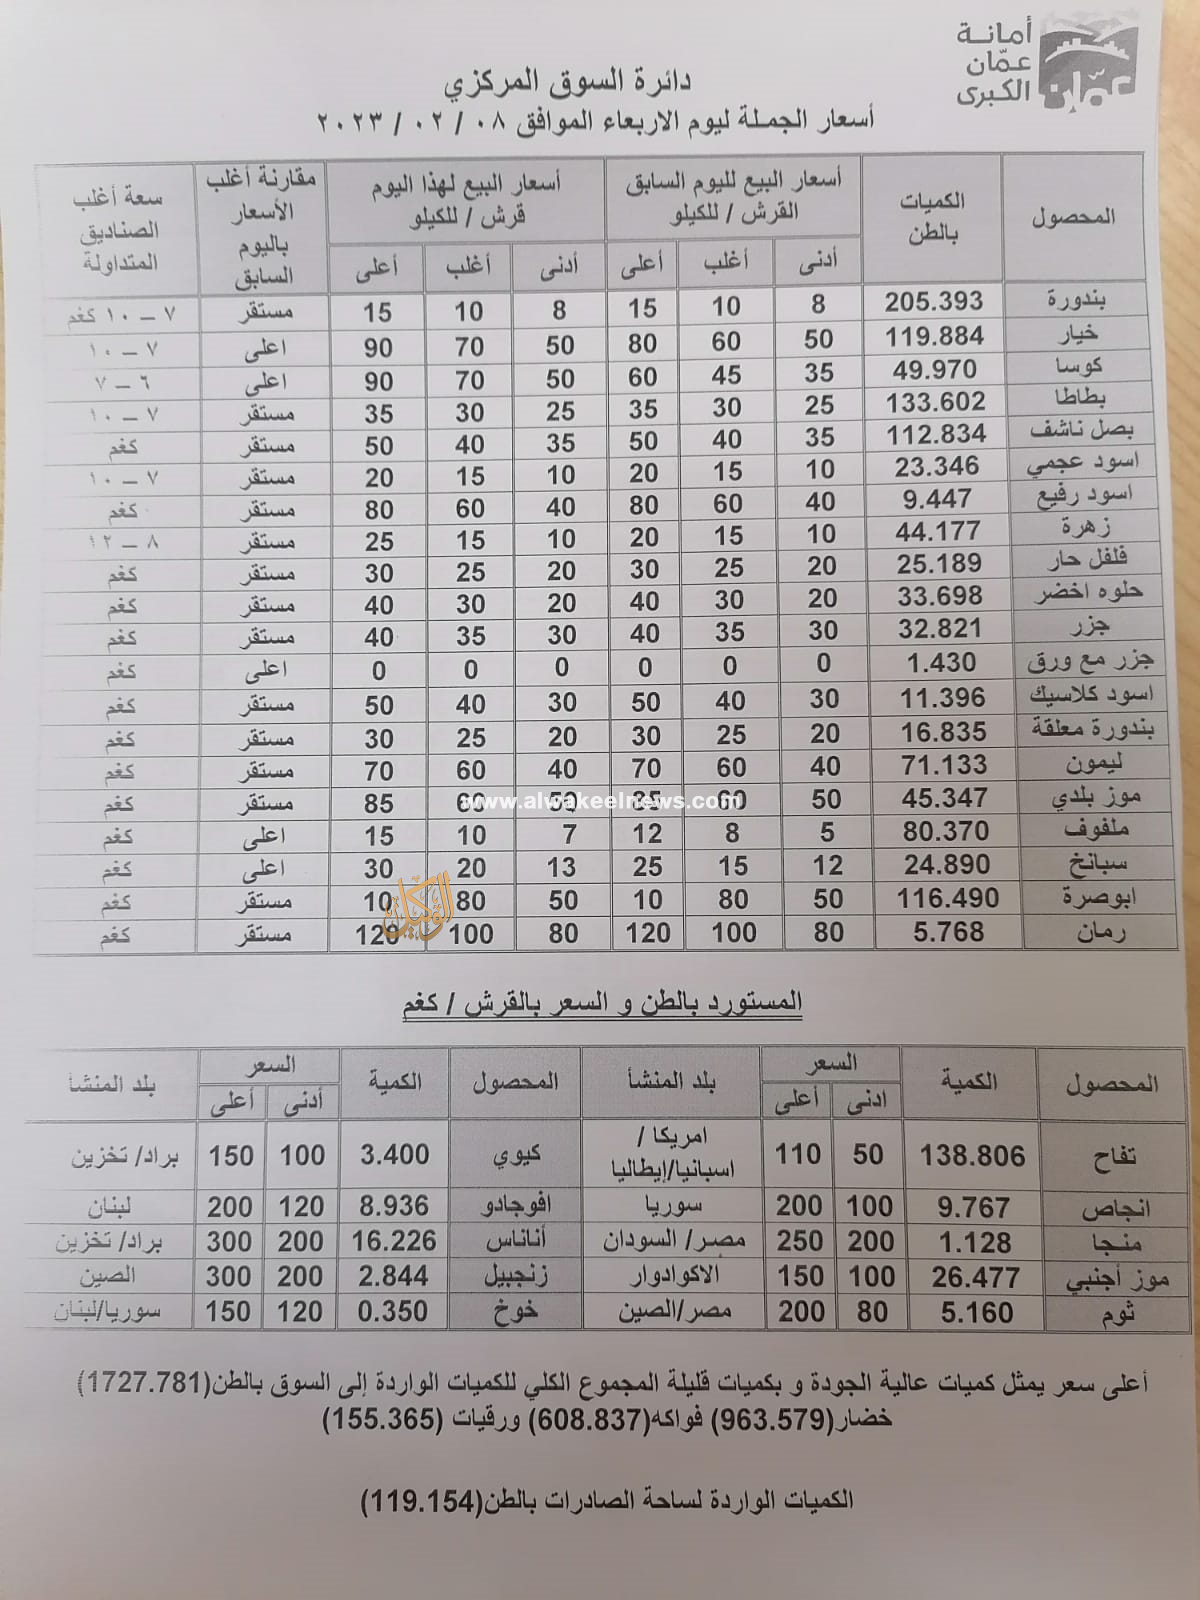 أمانة
عمّان
الكبرى
عمّان
دائرة السوق المركزي
أسعار الجملة ليوم الاربعاء الموافق ٠٨ / ٠٢ / ٢٠٢٣
المحصول | الكميات بالطن | أسعار البيع لليوم السابق القرش / للكيلو | أسعار البيع لهذا اليوم قرش / للكيلو | مقارنة أغلب الأسعار باليوم السابق | سعة أغلب الصناديق المتداولة
أدنى | أغلب | أعلى | أدنى | أغلب | أعلى
بندورة | 205.393 | 8 | 10 | 15 | 8 | 10 | 15 | مستقر | ٧ – ١٠ كغم
خيار | 119.884 | 50 | 60 | 80 | 50 | 70 | 90 | اعلى | ٧ – ١٠
كوسا | 49.970 | 35 | 45 | 60 | 50 | 70 | 90 | اعلى | ٦ – ٧
بطاطا | 133.602 | 25 | 30 | 35 | 25 | 30 | 35 | مستقر | ٧ – ١٠
بصل ناشف | 112.834 | 35 | 40 | 50 | 35 | 40 | 50 | مستقر | كغم
اسود عجمي | 23.346 | 10 | 15 | 20 | 10 | 15 | 20 | مستقر | ٧ – ١٠
اسود رفيع | 9.447 | 40 | 60 | 80 | 40 | 60 | 80 | مستقر | كغم
زهرة | 44.177 | 10 | 15 | 20 | 10 | 15 | 25 | مستقر | ٨ – ١٢
فلفل حار | 25.189 | 20 | 25 | 30 | 20 | 25 | 30 | مستقر | كغم
حلوه اخضر | 33.698 | 20 | 30 | 40 | 20 | 30 | 40 | مستقر | كغم
جزر | 32.821 | 30 | 35 | 40 | 30 | 35 | 40 | مستقر | كغم
جزر مع ورق | 1.430 | 0 | 0 | 0 | 0 | 0 | 0 | اعلى | كغم
اسود كلاسيك | 11.396 | 30 | 40 | 50 | 30 | 40 | 50 | مستقر | كغم
بندورة معلقة | 16.835 | 20 | 25 | 30 | 20 | 25 | 30 | مستقر | كغم
ليمون | 71.133 | 40 | 60 | 70 | 40 | 60 | 70 | مستقر | كغم
موز بلدي | 45.347 | 50 | 60 | 85 | 50 | 60 | 85 | مستقر | كغم
www.alwakeelnews.com
ملفوف | 80.370 | 5 | 8 | 12 | 7 | 10 | 15 | اعلى | كغم
سبانخ | 24.890 | 12 | 15 | 25 | 13 | 20 | 30 | اعلى | كغم
ابوصرة | 116.490 | 50 | 80 | 10 | 50 | 80 | 10 | مستقر | كغم
الوكيل
رمان | 5.768 | 80 | 100 | 120 | 80 | 100 | 120 | مستقر | كغم
المستورد بالطن و السعر بالقرش / كغم
المحصول | الكمية | السعر | بلد المنشأ | المحصول | الكمية | السعر | بلد المنشأ
ادنى | أعلى | أدنى | أعلى
تفاح | 138.806 | 50 | 110 | امريكا / اسبانيا/إيطاليا | كيوي | 3.400 | 100 | 150 | براد/ تخزين
انجاص | 9.767 | 100 | 200 | سوريا | افوجادو | 8.936 | 120 | 200 | لبنان
منجا | 1.128 | 200 | 250 | مصر/ السودان | أناناس | 16.226 | 200 | 300 | براد/ تخزين
موز أجنبي | 26.477 | 100 | 150 | الاكوادوار | زنجبيل | 2.844 | 200 | 300 | الصين
ثوم | 5.160 | 80 | 200 | مصر/الصين | خوخ | 0.350 | 120 | 150 | سوريا/لبنان
أعلى سعر يمثل كميات عالية الجودة و بكميات قليلة المجموع الكلي للكميات الواردة إلى السوق بالطن(1727.781)
خضار(963.579) فواكه(608.837) ورقيات (155.365)
الكميات الواردة لساحة الصادرات بالطن(119.154)